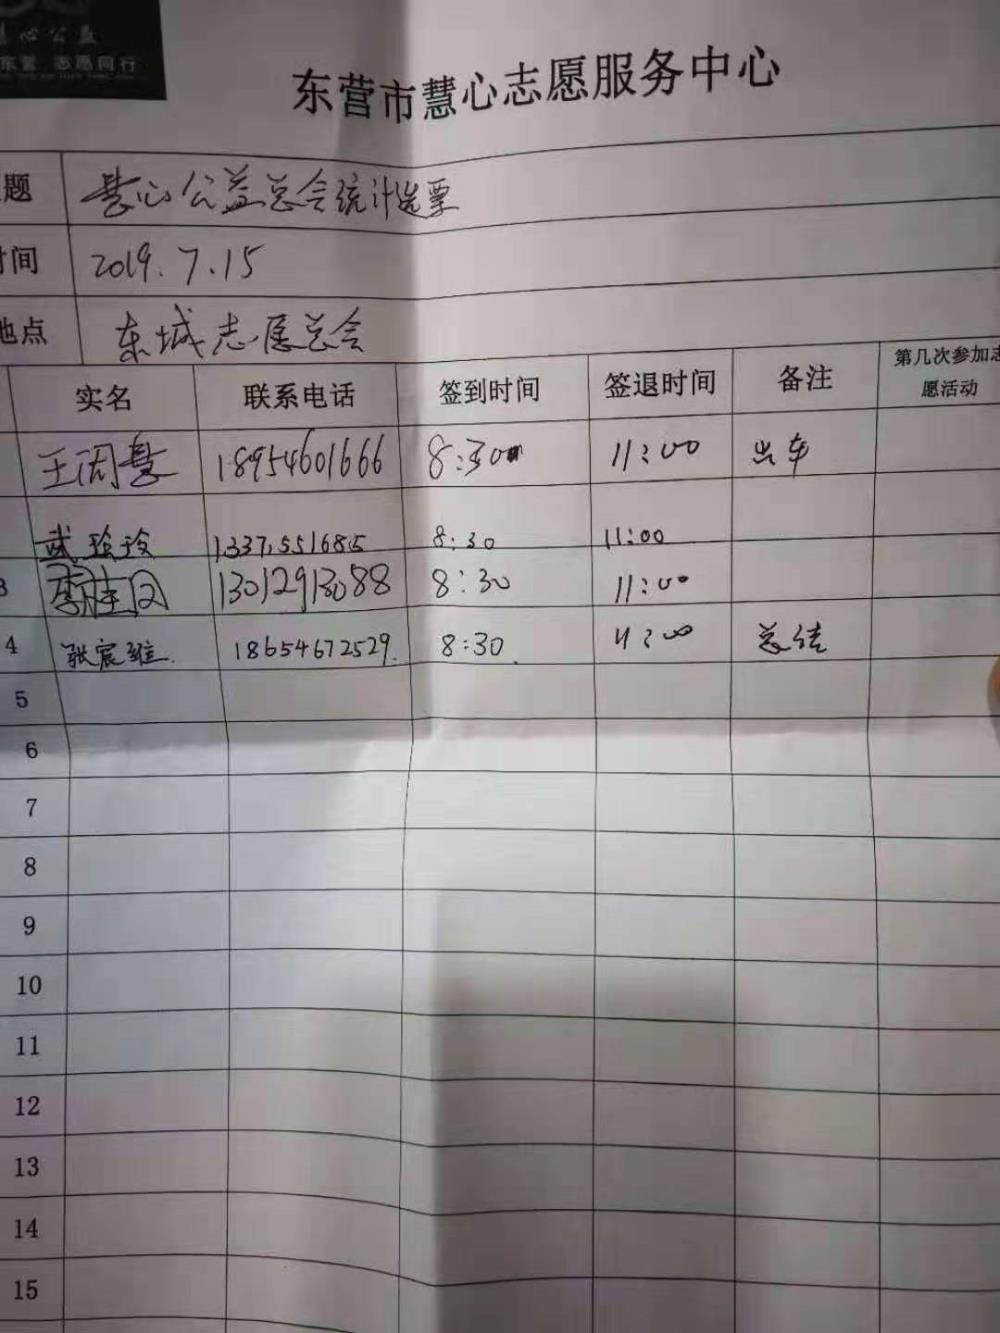 慧心公益
东营 志愿同行
东营市慧心志愿服务中心
题 慧心公益总会统计选票
时间 2019.7.15
地点 东城志愿总会
实名 联系电话 签到时间 签退时间 备注 第几次参加志愿活动
王闰慧 18954601666 8:30 11:00 出车
武玲玲 13375516815 8:30 11:00
3 李桂日 13012913088 8:30 11:00
4 张宸维. 18654672529. 8:30. 11:00 总结
5
6
7
8
9
10
11
12
13
14
15